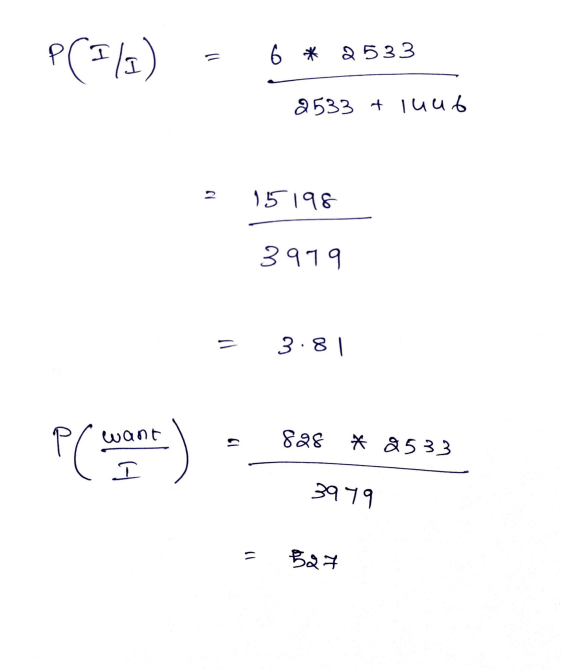 P(I/I) = 6 * 2533
2533 + 1446
= 15198
3979
= 3.81
P(want/I) = 828 * 2533
3979
= 527